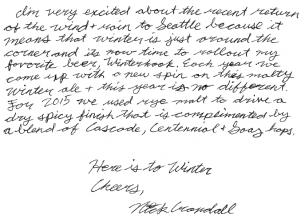 I'm very excited about the recent return
of the wind + rain to Seattle because it
means that winter is just around the
corner and its now time to rollout my
favorite beer, Winterhook. Each year we
come up with a new spin on this malty
Winter ale + this year is no different.
For 2015 we used rye malt to drive a
dry spicy finish that is complimented by
a blend of Cascade, Centennial + Saaz hops.
Here is to Winter
Cheers,
Nick Crandall